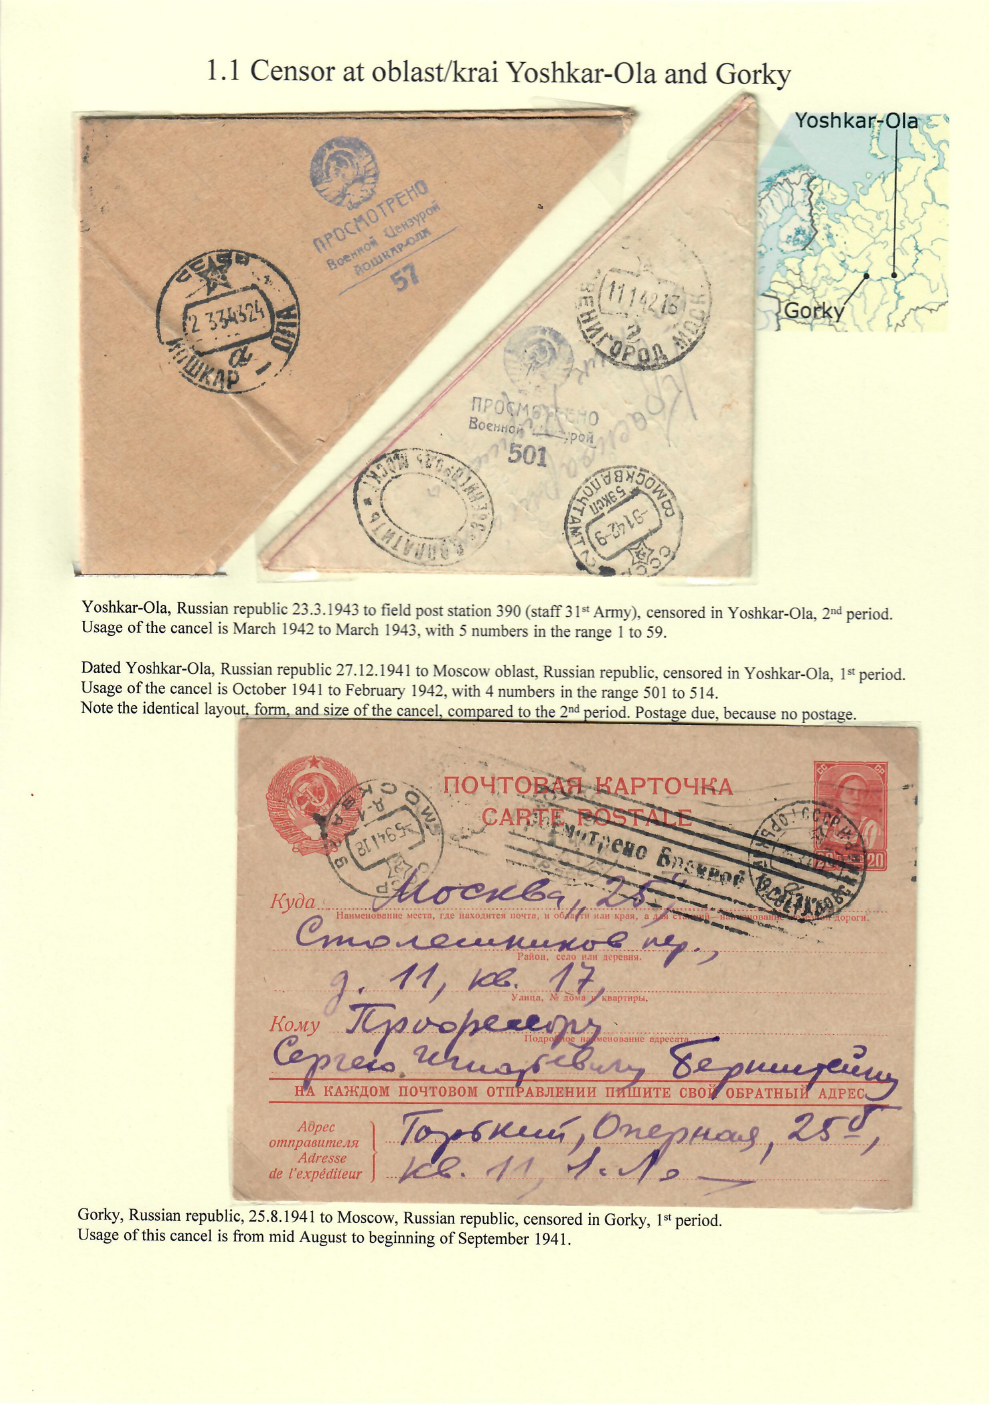 1.1 Censor at oblast/krai Yoshkar-Ola and Gorky
Yoshkar-Ola
Gorky
ПРОСМОТРЕНО
Военной Цензурой
Йошкар-Ола
57
2 334324
ЙОШКАР
11.1.42.13
ЗВЕНИГОРОД МОСК
ПРОСМОТРЕНО
Военной
501
ДОПЛАТИТЬ
МОСКВА ПОЧТАМТ
5 ЭКСП
-9.1.42-9
СССР
Yoshkar-Ola, Russian republic 23.3.1943 to field post station 390 (staff 31st Army), censored in Yoshkar-Ola, 2nd period.
Usage of the cancel is March 1942 to March 1943, with 5 numbers in the range 1 to 59.
Dated Yoshkar-Ola, Russian republic 27.12.1941 to Moscow oblast, Russian republic, censored in Yoshkar-Ola, 1st period.
Usage of the cancel is October 1941 to February 1942, with 4 numbers in the range 501 to 514.
Note the identical layout, form, and size of the cancel, compared to the 2nd period. Postage due, because no postage.
ПОЧТОВАЯ КАРТОЧКА
CARTE POSTALE
МОСКВА
-5.9.41.18
СССР
Просмотрено Военной
20
Куда Москва, 25,
Наименование места, где находится почта, и области или края, а для станций—наименование железной дороги.
Столешников пер.,
Район, село или деревня.
д. 11, кв. 17,
Улица, № дома и квартиры.
Кому Профессору
Подробное наименование адресата
Сергею Игнатьевичу Бернштейну
НА КАЖДОМ ПОЧТОВОМ ОТПРАВЛЕНИИ ПИШИТЕ СВОЙ ОБРАТНЫЙ АДРЕС
Адрес
отправителя
Adresse
de l'expéditeur
Горький, Оперная, 25
кв. 11,
Gorky, Russian republic, 25.8.1941 to Moscow, Russian republic, censored in Gorky, 1st period.
Usage of this cancel is from mid August to beginning of September 1941.